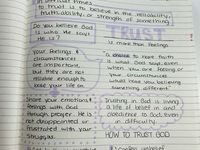 in difficult times
trust is to believe in the reliability,
truth, ability, or strength of something
Do you believe God
is who He say
He is?
TRUST
is more than feelings
Your feelings &
circumstances
are important,
but they are not
reliable enough to
base your life on.
a choice to have faith
is what God says even
when you are feeling or
your circumstances
would have you believing
something different
Share your emotions &
feelings with God
through prayer. He is
not disappointed or
frustrated with your
struggle.
Trusting in God is living
a life of belief in and
obedience to God even
in difficulty.
HOW TO TRUST GOD